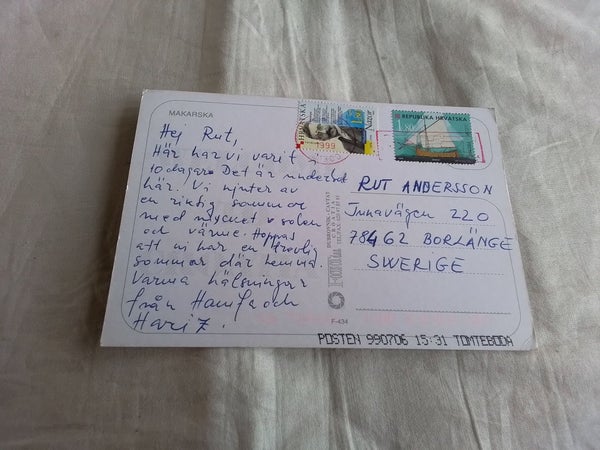 MAKARSKA
Hej Rut,
Här har vi varit i
10 dagar. Det är underbat
här. Vi njuter av
en riktig sommar
med mycket sol
och värme. Hoppas
att ni har en trevlig
sommar där hemma.
Varma hälsningar
från Hamfa och
Hari Z.
HRVATSKA
1,80
Nazor
1999
REPUBLIKA HRVATSKA
1.80
RUT ANDERSSON
Tunavägen 220
78462 BORLÄNGE
SWERIGE
DUBROVNIK, CAVTAT
CROATIA
F-434
POSTEN 990706 15:31 TOMTEBODA